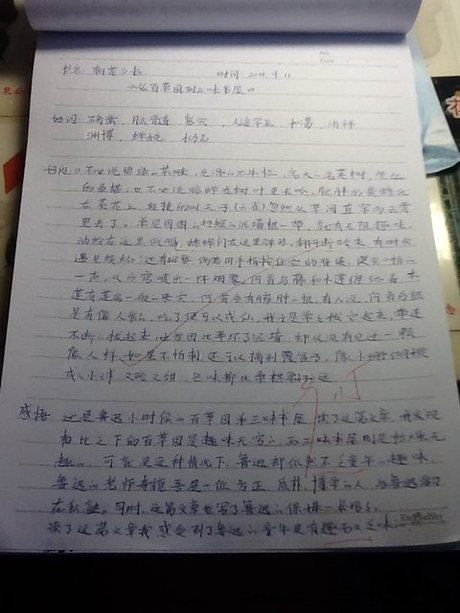 书名：朝花夕拾 时间：
《从百草园到三味书屋》
好词：确凿、脑髓、 人迹罕至、 和蔼、
渊博、蝉蜕、
好句：不必说碧绿的菜畦，光滑的石井栏，高大的皂荚树，紫红
的桑椹，也不必说鸣蝉在树叶里长吟，肥胖的黄蜂伏
在菜花上，轻捷的叫天子（云雀）忽然从草间直窜向云霄
里去了，单是周围的短短的泥墙根一带，就有无限趣味，
油蛉在这里低唱，蟋蟀们在这里弹琴，翻开断砖来，有时会
遇见蜈蚣，还有斑蝥，倘若用手指按住它的脊梁，便会啪的
一声，从后窍喷出一阵烟雾，何首乌藤和木莲藤缠着，木
莲有莲房一般的果实，何首乌有臃肿的根，有人说，何首乌根
是有像人形的，吃了便可以成仙，我于是常常拔它起来，牵连
不断地拔起来，也曾因此弄坏了泥墙，却从没有见过一颗
像人样，如果不怕刺，还可以摘到覆盆子，像小珊瑚珠攒
成的小球，又酸又甜，色味都比桑椹要好的远
们
感悟：这是鲁迅小时候的百草园和三味书屋，读了这篇文章，我发现
相比之下的百草园是趣味无穷的，而三味书屋则是枯燥无
趣的，可就是这种情况下，鲁迅却依然不乏童年的趣味，
鲁迅的老师寿镜吾是一位方正、质朴、博学的人，
同时，这篇文章也写了鲁迅的保姆—长妈妈，
读了这篇文章我感受到了鲁迅的童年是有趣而又乏味